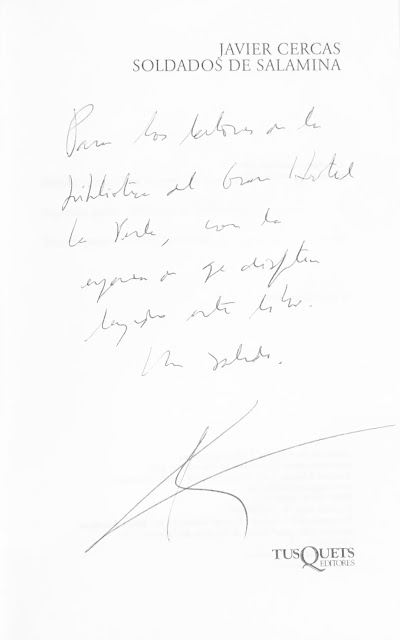 JAVIER CERCAS
SOLDADOS DE SALAMINA
Para los lectores de la
biblioteca del Gran Hotel
La Perla, con la
esperanza de que disfruten
leyendo este libro.
Un saludo.
TUSQUETS
EDITORES